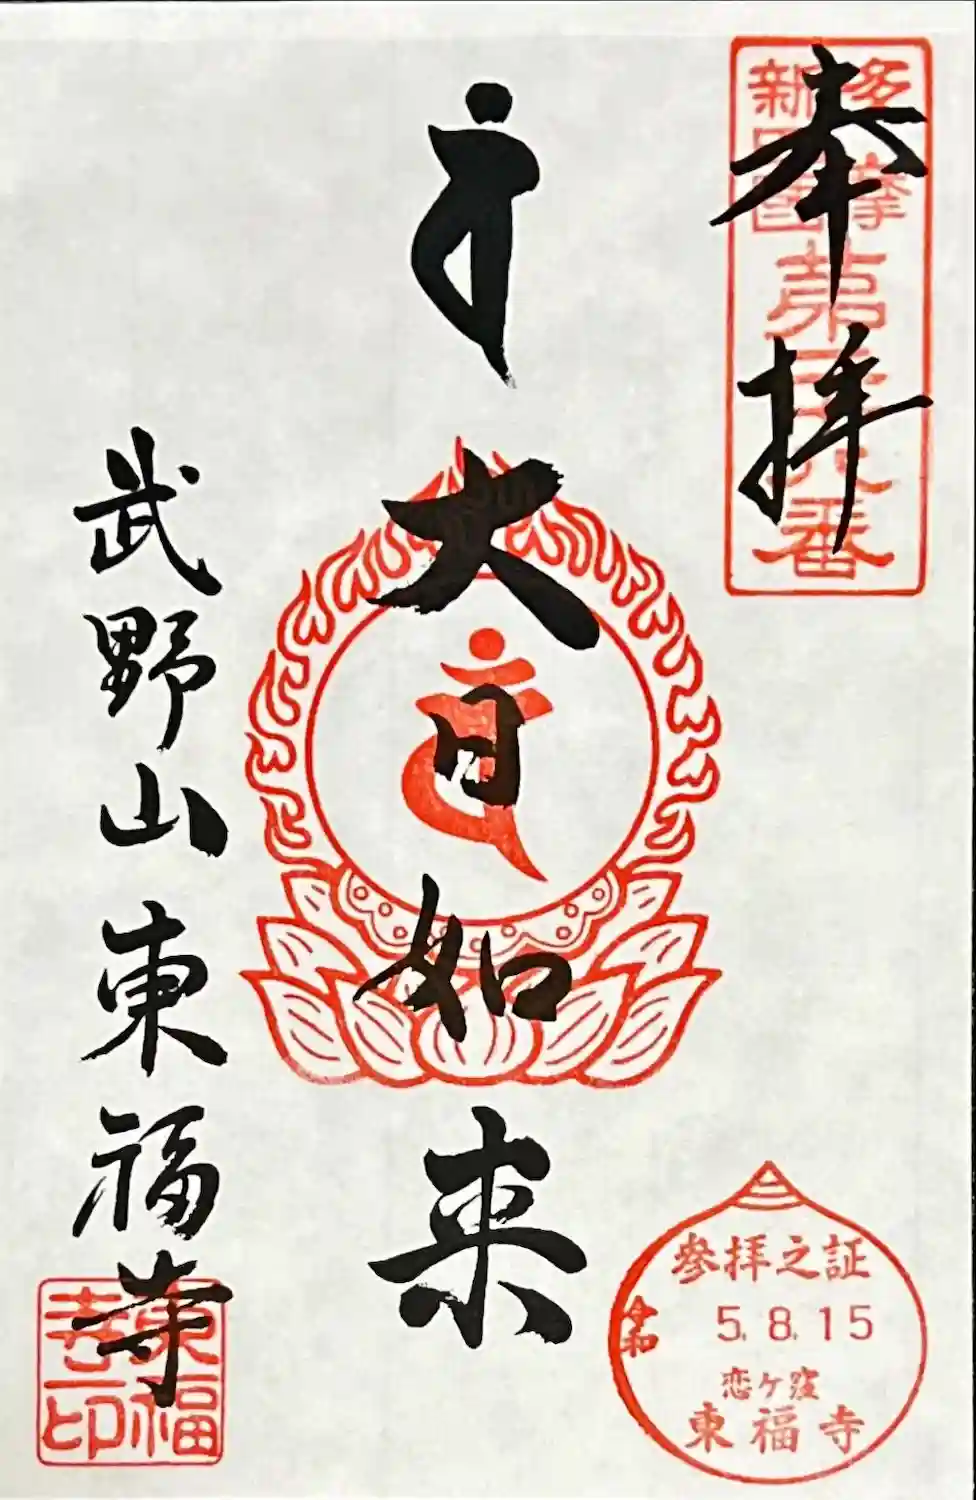 奉拝
多摩
新四国
第二十八番
大日如来
武野山東福寺
東福
寺印
参拝之証
令和
5.8.15
恋ケ窪
東福寺